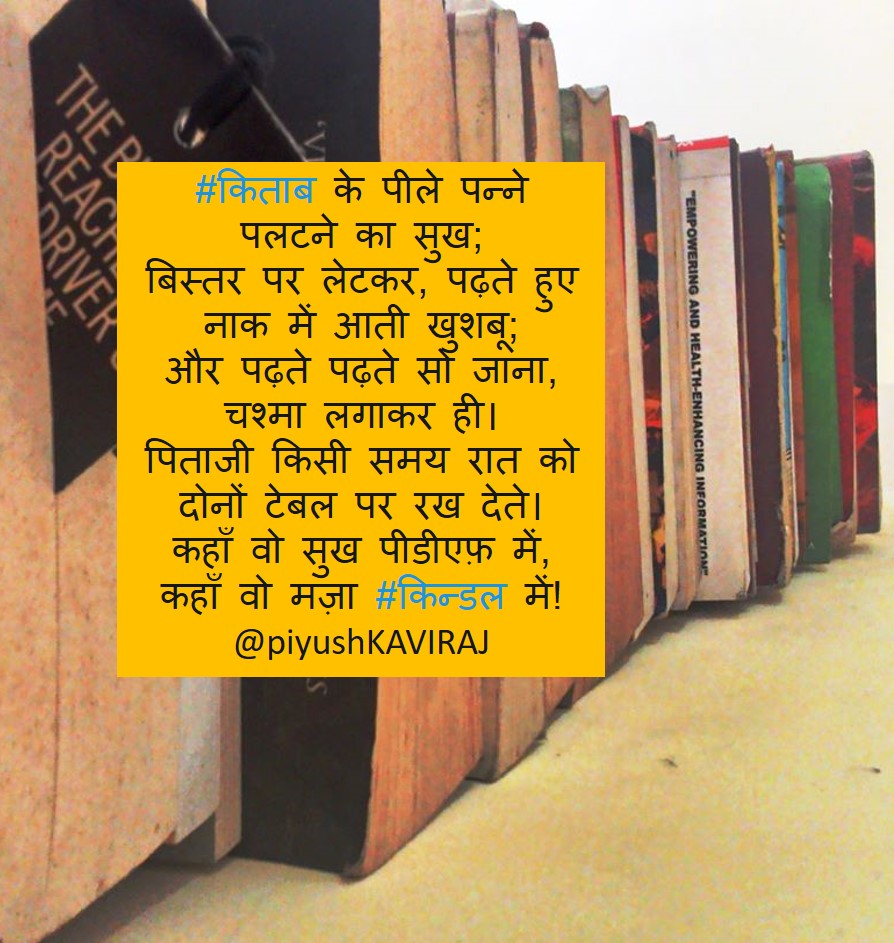 THE
REACHE
DRIVER
#किताब के पीले पन्ने
पलटने का सुख;
बिस्तर पर लेटकर, पढ़ते हुए
नाक में आती खुशबू;
और पढ़ते पढ़ते सो जाना,
चश्मा लगाकर ही।
पिताजी किसी समय रात को
दोनों टेबल पर रख देते।
कहाँ वो सुख पीडीएफ़ में,
कहाँ वो मज़ा #किन्डल में!
@piyushKAVIRAJ
"EMPOWERING AND HEALTH-ENHANCING INFORMATION"